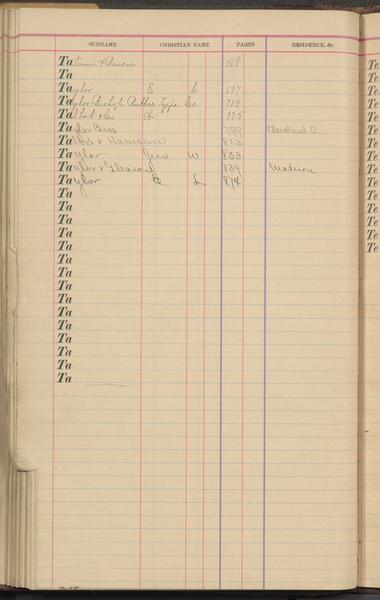 SURNAME CHRISTIAN NAME PAGES RESIDENCE, &c.
Ta 468
Ta
Taylor E C 697
Taylor Type Co. 719
Talbot & Co 775
Taylor Bros 799 Cleveland O.
Ta 813
Taylor Jno W 833
Taylor & Gleason 839 Madison
Taylor E L 874
Ta
Ta
Ta
Ta
Ta
Ta
Ta
Ta
Ta
Ta
Ta
Ta
Ta
Ta
Ta
Te
Te
Te
Te
Te
Te
Te
Te
Te
Te
Te
Te
Te
Te
Te